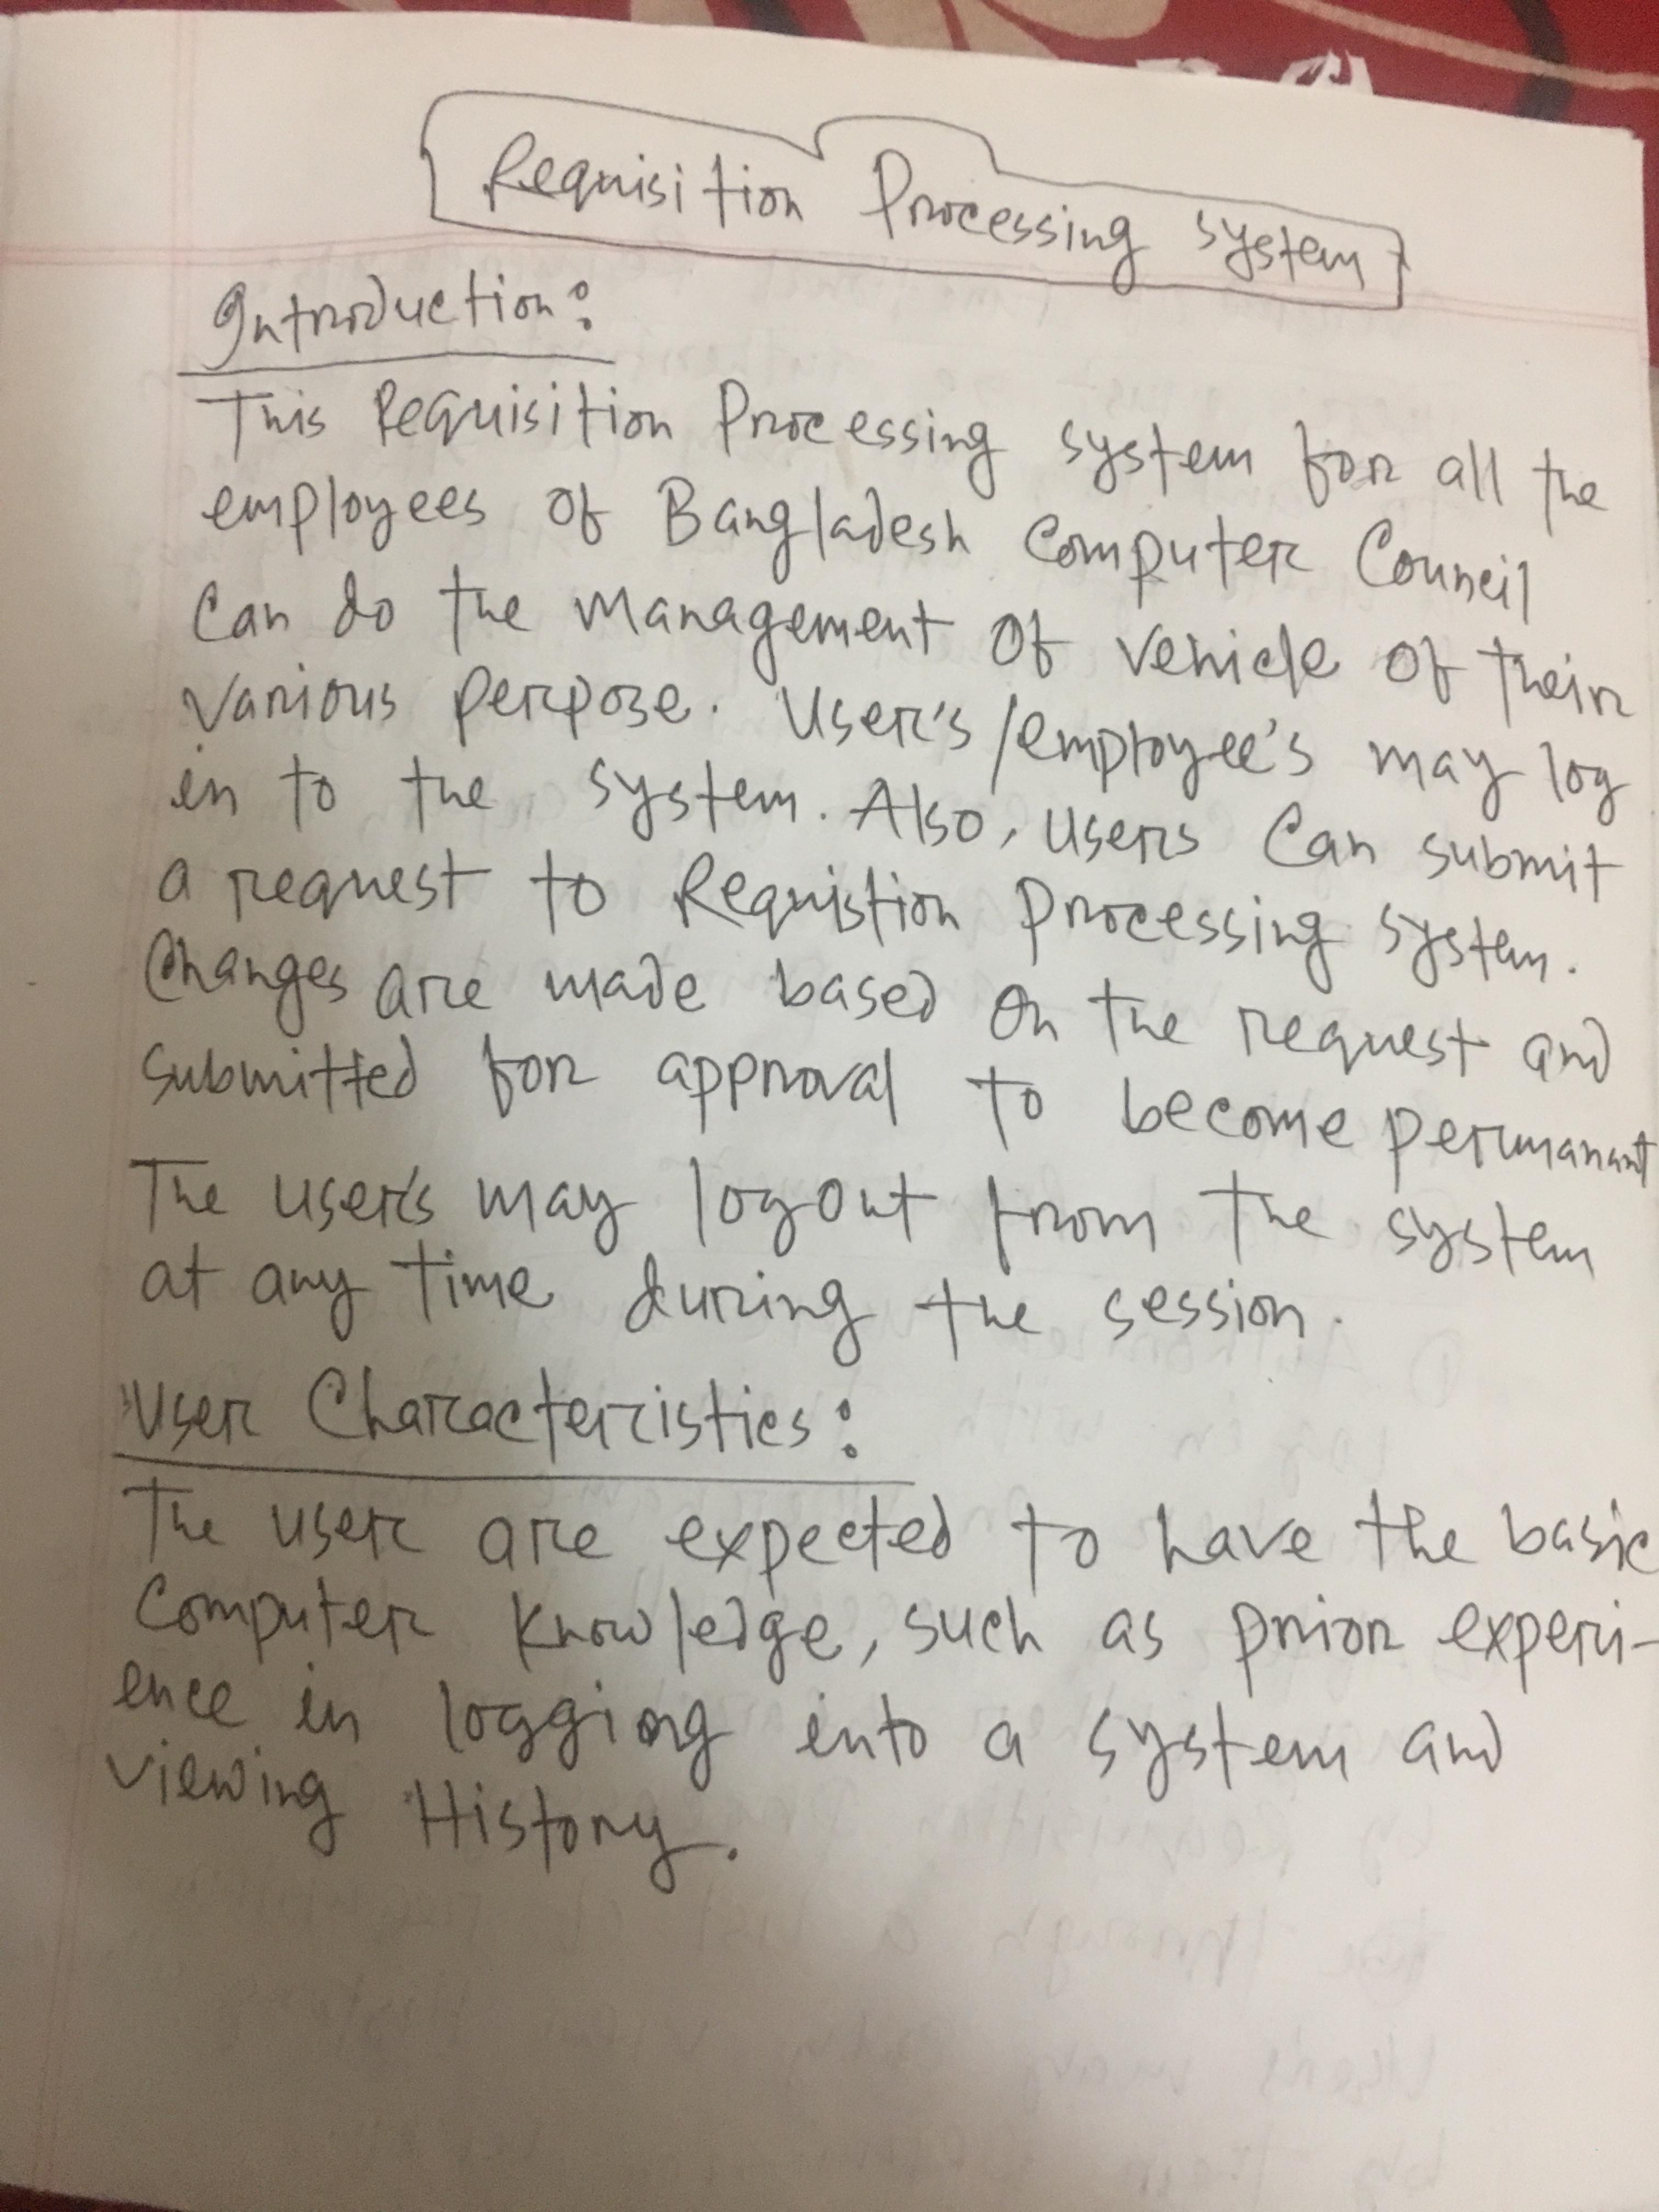 Requisition Processing system
Introduction:
This Requisition Processing system for all the
employees of Bangladesh Computer Council
Can do the management of vehicle of their
various perpose. User's/employee's may log
in to the system. Also, users can submit
a request to Requistion Processing system.
Changes are made based on the request and
submitted for approval to become permanant
The user's may logout from the system
at any time during the session.
User Characteristics:
The user are expected to have the basic
Computer knowledge, such as prior experi-
ence in logging into a system and
viewing History.